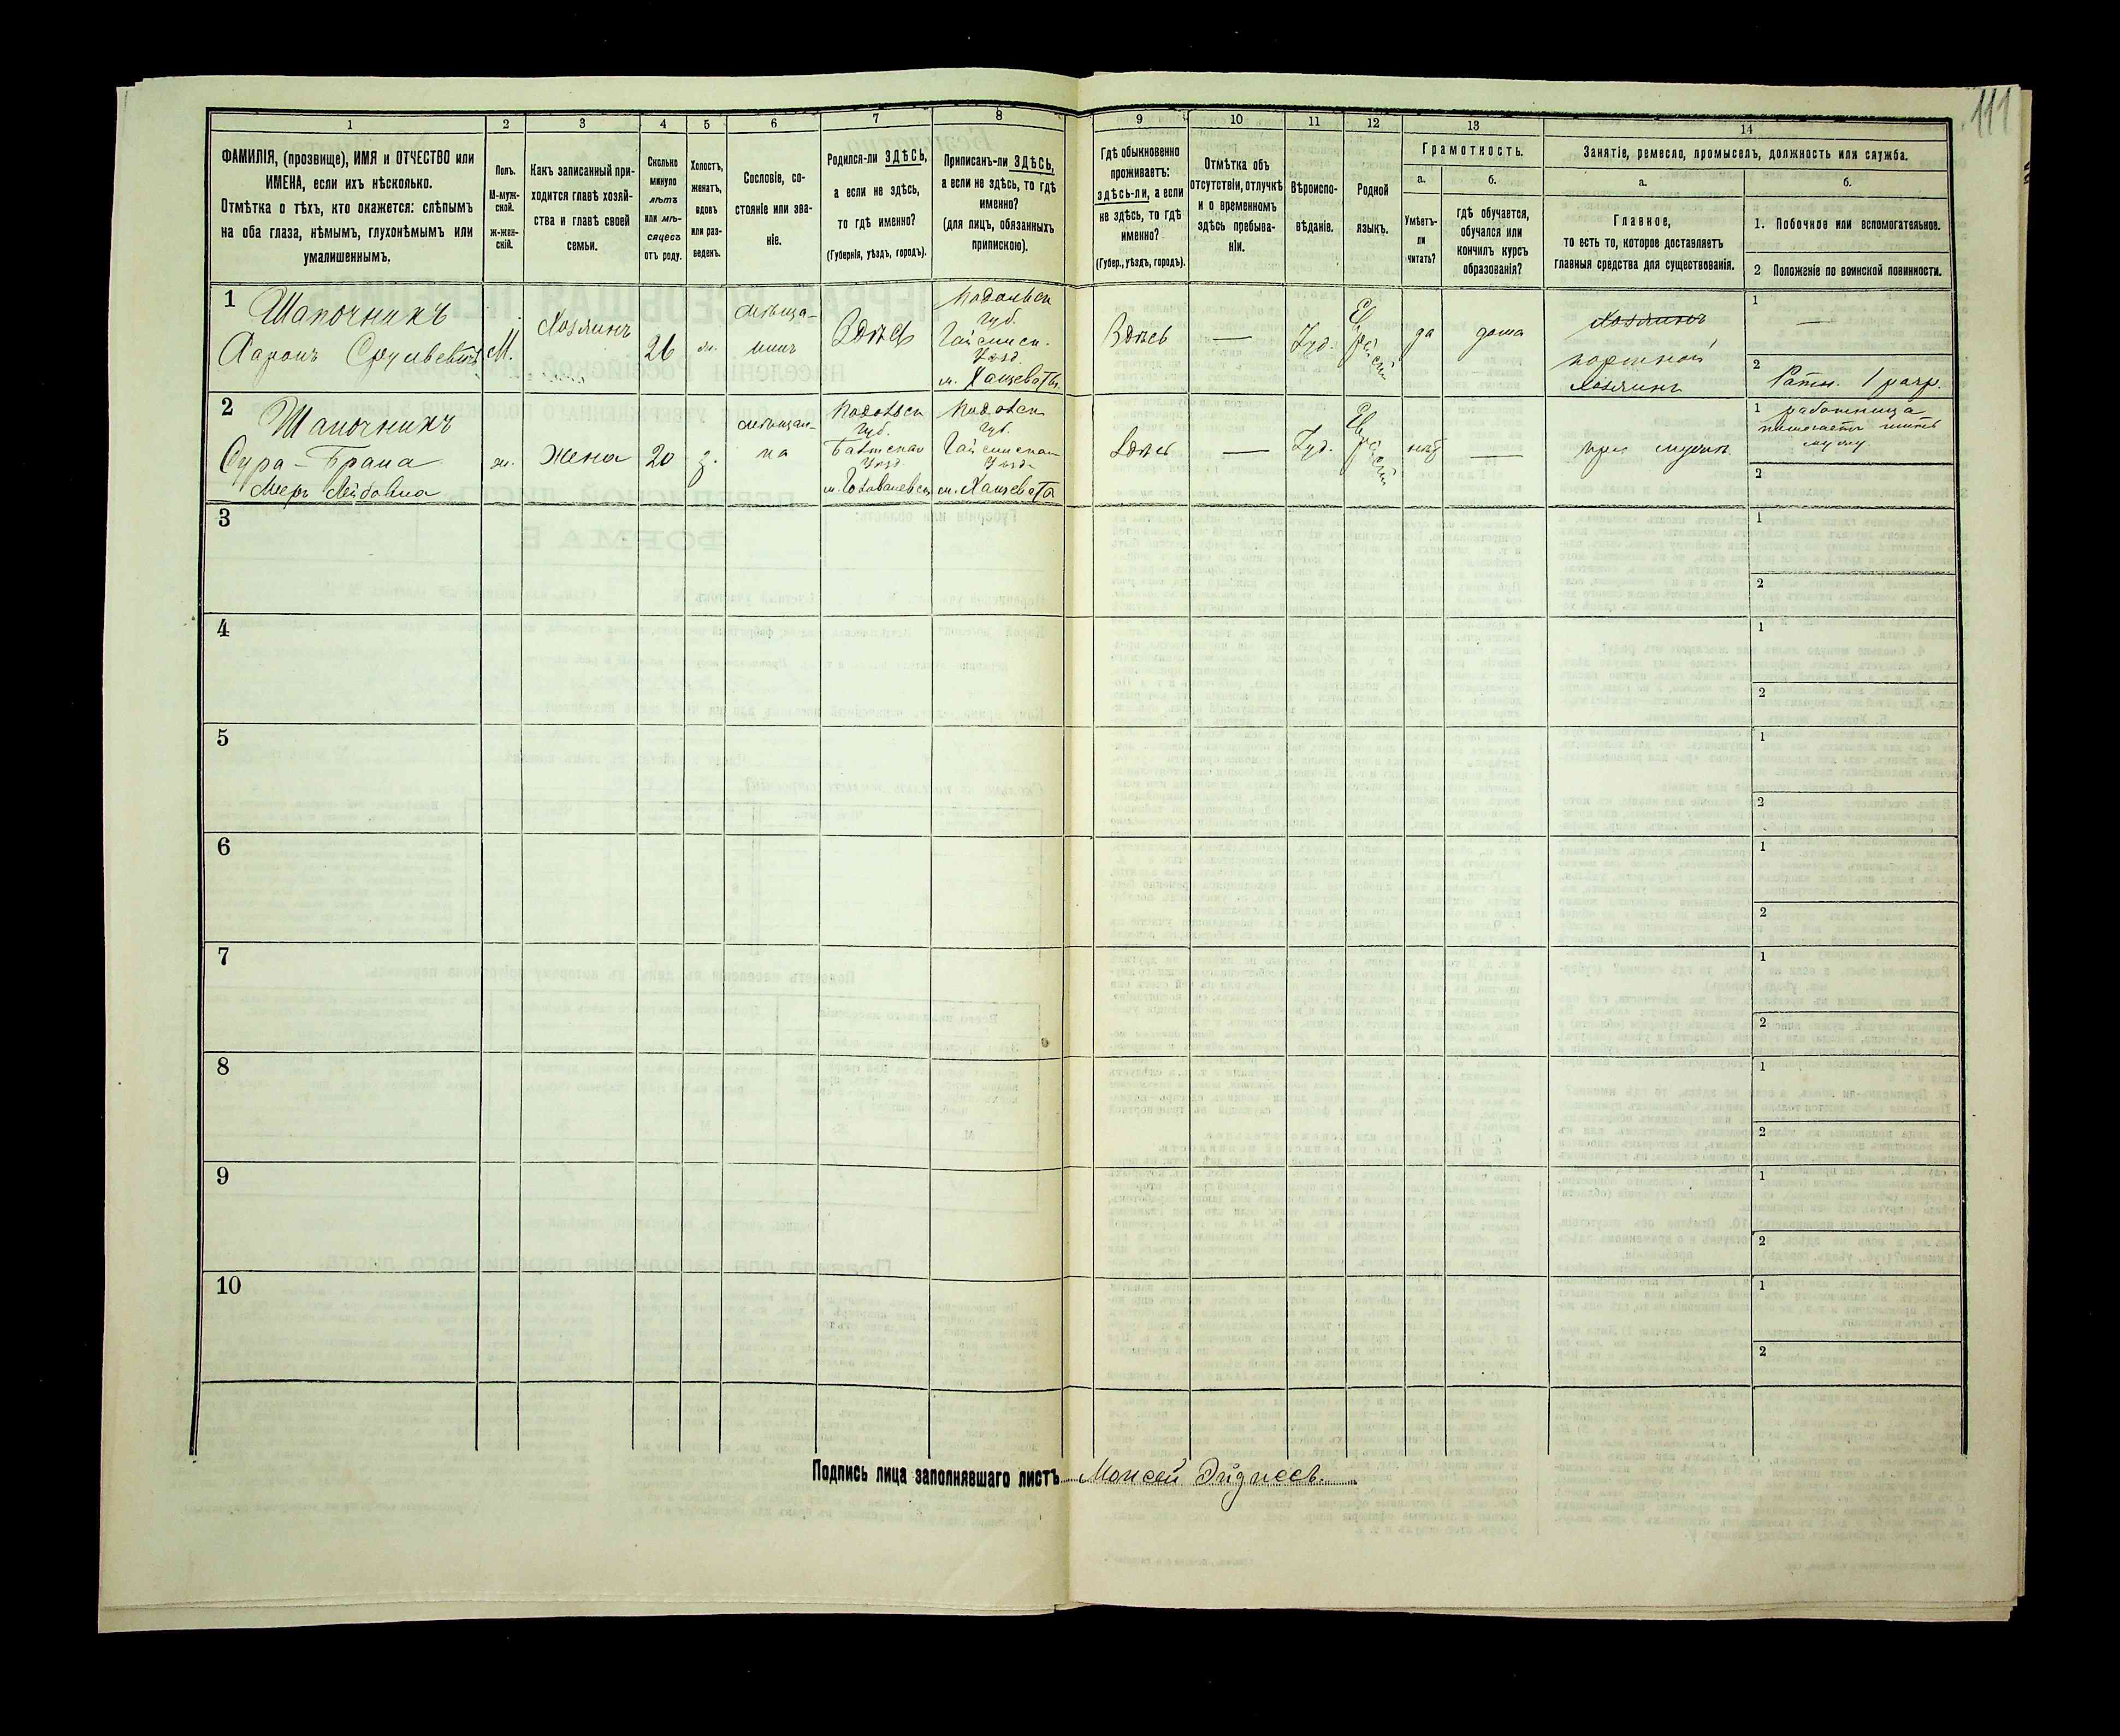 111
1
2
3
4
5
6
7
8
9
10
11
12
13
14
ФАМИЛІЯ, (прозвище), ИМЯ и ОТЧЕСТВО или
ИМЕНА, если ихъ нѣсколько.
Отмѣтка о тѣхъ, кто окажется: слѣпымъ
на оба глаза, нѣмымъ, глухонѣмымъ или
умалишеннымъ.
Полъ.
М-муж-
ской.
ж-жен-
скій.
Какъ записанный при-
ходится главѣ хозяй-
ства и главѣ своей
семьи.
Сколько
минуло
лѣтъ
или мѣ-
сяцевъ
отъ роду.
Холостъ,
женатъ,
вдовъ
или раз-
веденъ.
Сословіе, со-
стояніе или зва-
ніе.
Родился-ли ЗДѢСЬ,
а если не здѣсь,
то гдѣ именно?
(Губернія, уѣздъ, городъ).
Приписанъ-ли ЗДѢСЬ,
а если не здѣсь, то гдѣ
именно?
(для лицъ, обязанныхъ
припискою).
Гдѣ обыкновенно
проживаетъ:
здѣсь-ли, а если
не здѣсь, то гдѣ
именно?
(Губер., уѣздъ, городъ).
Отмѣтка объ
отсутствіи, отлучкѣ
и о временномъ
здѣсь пребыва-
ніи.
Вѣроиспо-
вѣданіе.
Родной
языкъ.
Грамотность.
а.
Умѣетъ-
ли
читать?
б.
гдѣ обучается,
обучался или
кончилъ курсъ
образованія?
Занятіе, ремесло, промыселъ, должность или служба.
а.
Главное,
то есть то, которое доставляетъ
главныя средства для существованія.
б.
1. Побочное или вспомогательное.
2 Положеніе по воинской повинности.
1
Шапочникъ
Ааронъ
М.
Хозяинъ
26
ж.
мѣща-
нинъ
Здѣсь
Подольск
Губ.
Гайсинск.
Уѣзд.
м. Хащевата
Здѣсь
—
Іуд.
Еврейскій
да
дома
Хозяинъ
портной
хозяинъ
1
—
2
Ратн. 1 разр.
2
Шапочникъ
Сура-Брана
Мееръ Лейбовна
ж.
Жена
20
з.
мѣщан-
ка
Подольск
Губ.
Балтскаго
Уѣзд.
м. Голованевск
Подольск
Губ.
Гайсинскаго
Уѣзд.
м. Хащевата
Здѣсь
—
Іуд.
Еврейскій
нѣтъ
—
при мужѣ
1 работница
помогаетъ шить
мужу
2
3
1
2
4
1
2
5
1
2
6
1
2
7
1
2
8
1
2
9
1
2
10
1
2
Подпись лица заполнявшаго листъ Моисей